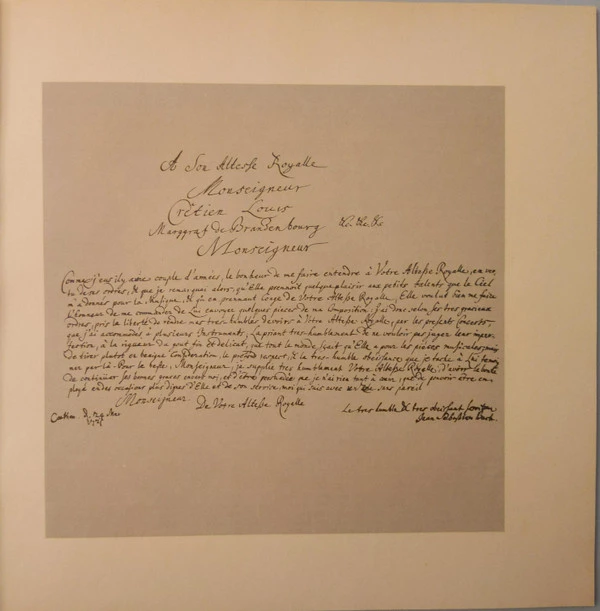 A Son Altesse Royalle
Monseigneur
Crêtien Louis
Marggraf de Brandenbourg &c. &c. &c.
Monseigneur
Comme j'eus il y a une couple d'années, le bonheur de me faire entendre à Votre Altesse Royalle, en ver
tu de ses ordres; & que je remarquai alors, qu'Elle prennoit quelque plaisir aux petits talents que le Ciel
m'a donnés pour la Musique, & qu'en prennant Conge de Votre Altesse Royalle, Elle voulut bien me faire
l'honneur de me commander de Lui envoyer quelques pieces de ma Composition; j'ai donc selon ses tres gracieux
ordres, pris la liberté de rendre mes tres-humbles devoirs à Votre Altesse Royalle, par les presents Concerts,
que j'ai accommodés à plusieurs Instruments; La priant tres-humblement de ne vouloir pas juger leur imper-
fection, à la rigueur du gout fin et delicat, que tout le monde sçait qu'Elle a pour les pièces musicales;
de tirer plutot en benigne Consideration, le profond respect, & la tres-humble obeissance que je tache à Lui temoi
ner par là. Pour le reste, Monseigneur, je supplie tres humblement Votre Altesse Royalle, d'avoir la bonté
de continuer ses bonnes graces envers moi, et d'être persuadée que je n'ai rien tant à cœur, que de pouvoir être em-
ployé en des occasions plus dignes d'Elle et de son service, moi qui suis avec un zele sans pareil
Monseigneur
De Votre Altesse Royalle
Coethen. d. 24 Mar
1721
Le tres humble & tres obeissant serviteur
Jean Sebastien Bach.